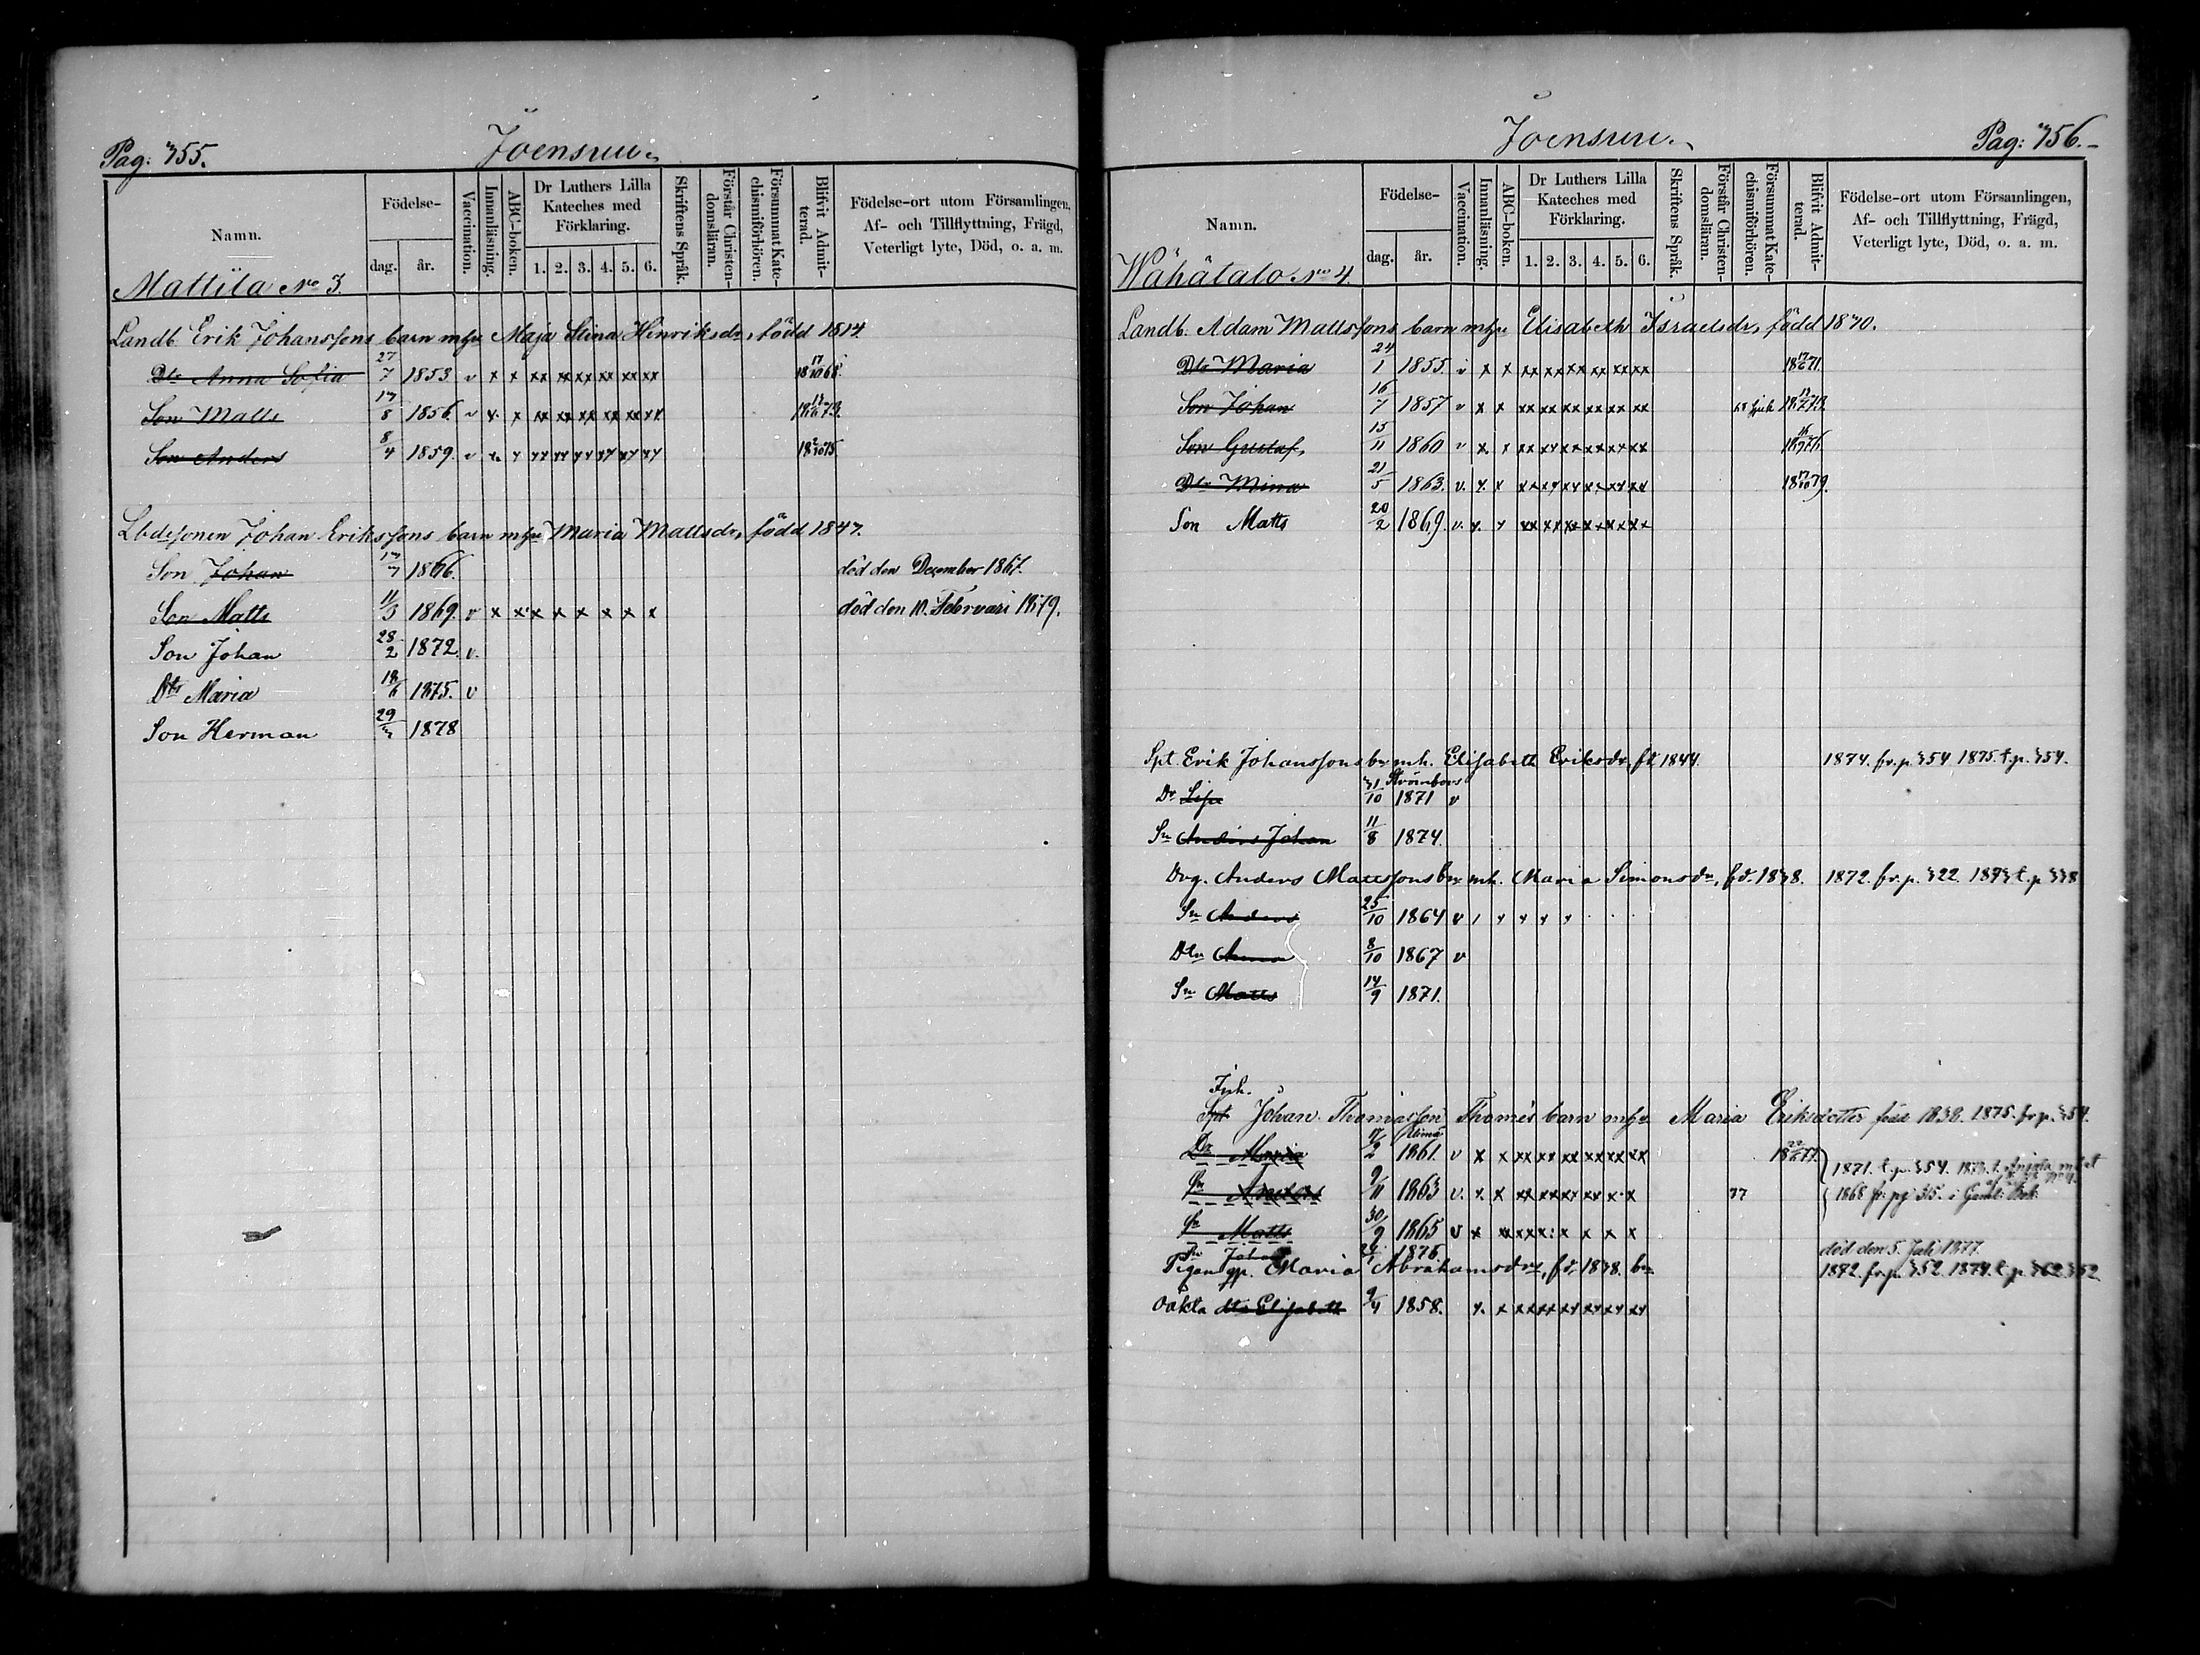 Pag: 755.
Joensuu.
Namn.
Födelse-
dag.
år.
Vaccination.
Innanläsning.
ABC-boken.
Dr Luthers Lilla Kateches med Förklaring.
1. 2. 3. 4. 5. 6.
Skriftens Språk.
Förstår Christendomsläran.
Försummat Katechismiförhören.
Blifvit Admitterad.
Födelse-ort utom Församlingen,
Af- och Tillflyttning, Frägd,
Veterligt lyte, Död, o. a. m.
Mattila No 3.
Landb. Erik Johanssons barn m hu Maja Stina Henriksdr, född 1814.
Dtr Anna Sofia 27/7 1853 v x x xx xx xx xx xx xx 18 17/10 68.
Son Matts 17/8 1856. v x. x xx xx xx xx xx xx
Son Anders 8/4 1859. v x. x xx xx xx xx xx xx 18 2/10 75
Lbdesonen Johan Erikssons barn m hu Maria Mattsdr, född 1847.
Son Johan 17/7 1866. död den December 1867.
Son Matts 11/3 1869. v x x x x x x x x död den 10. Februari 1879.
Son Johan 28/2 1872. v.
Dtr Maria 18/6 1875. v
Son Herman 29/ 1878
Joensuu.
Pag: 756.
Namn.
Födelse-
dag.
år.
Vaccination.
Innanläsning.
ABC-boken.
Dr Luthers Lilla Kateches med Förklaring.
1. 2. 3. 4. 5. 6.
Skriftens Språk.
Förstår Christendomsläran.
Försummat Katechismiförhören.
Blifvit Admitterad.
Födelse-ort utom Församlingen,
Af- och Tillflyttning, Frägd,
Veterligt lyte, Död, o. a. m.
Wähätalo No 4.
Landb. Adam Mattssons barn m hu Elisabeth Israelsdr, född 1870.
Dtr Maria 24/1 1855. v x x xx xx xx xx xx xx
Son Johan 16/7 1857 v x x xx xx xx xx xx xx
Son Gustaf, 13/11 1860 v x. x xx xx xx xx xx xx
Dtr Mina 21/5 1863. v. x. x xx xx xx xx xx xx 18 17/10 79.
Son Matts 20/2 1869. v. x. x xx xx xx xx xx xx
Spt. Erik Johanssons br mh. Elisabeth Eriksdr, fd 1844. 1874. fr. p. 354 1875. t. p. 354.
Dr Lisa 31/10 1871 v
Sn Anders Johan 11/8 1874.
Drg. Anders Mattssons br mh. Maria Simonsdr, fd. 1838. 1872. fr. p. 322 1873 t. p. 338
Sn Anders 25/10 1864 v
Dtr Anna 8/10 1867 v
Sn Matts 14/9 1871.
Inh.
Spt Johan Thomasson Thomès barn m hu Maria Eriksdotter född 1838. 1875. fr p. 354.
Dr Maria 17/2 1861. v x x xx xx xx xx xx xx 1871. t. p. 354.
Sn Anders 9/11 1863 v. x. x xx xx xx xx x x 77 1868 fr. pg 315. i Gaml: Bok
Sn Matts 30/9 1865 v x
Sn Johan 1876. död den 5. Juli 1877.
Pigan gp. Maria Abrahamsdr, fd. 1838. br 1872. fr. p. 352. 1874. t. p. 362
Oäkta dtr Elisabeth 9/4 1858. x. x xx xx xx xx xx xx